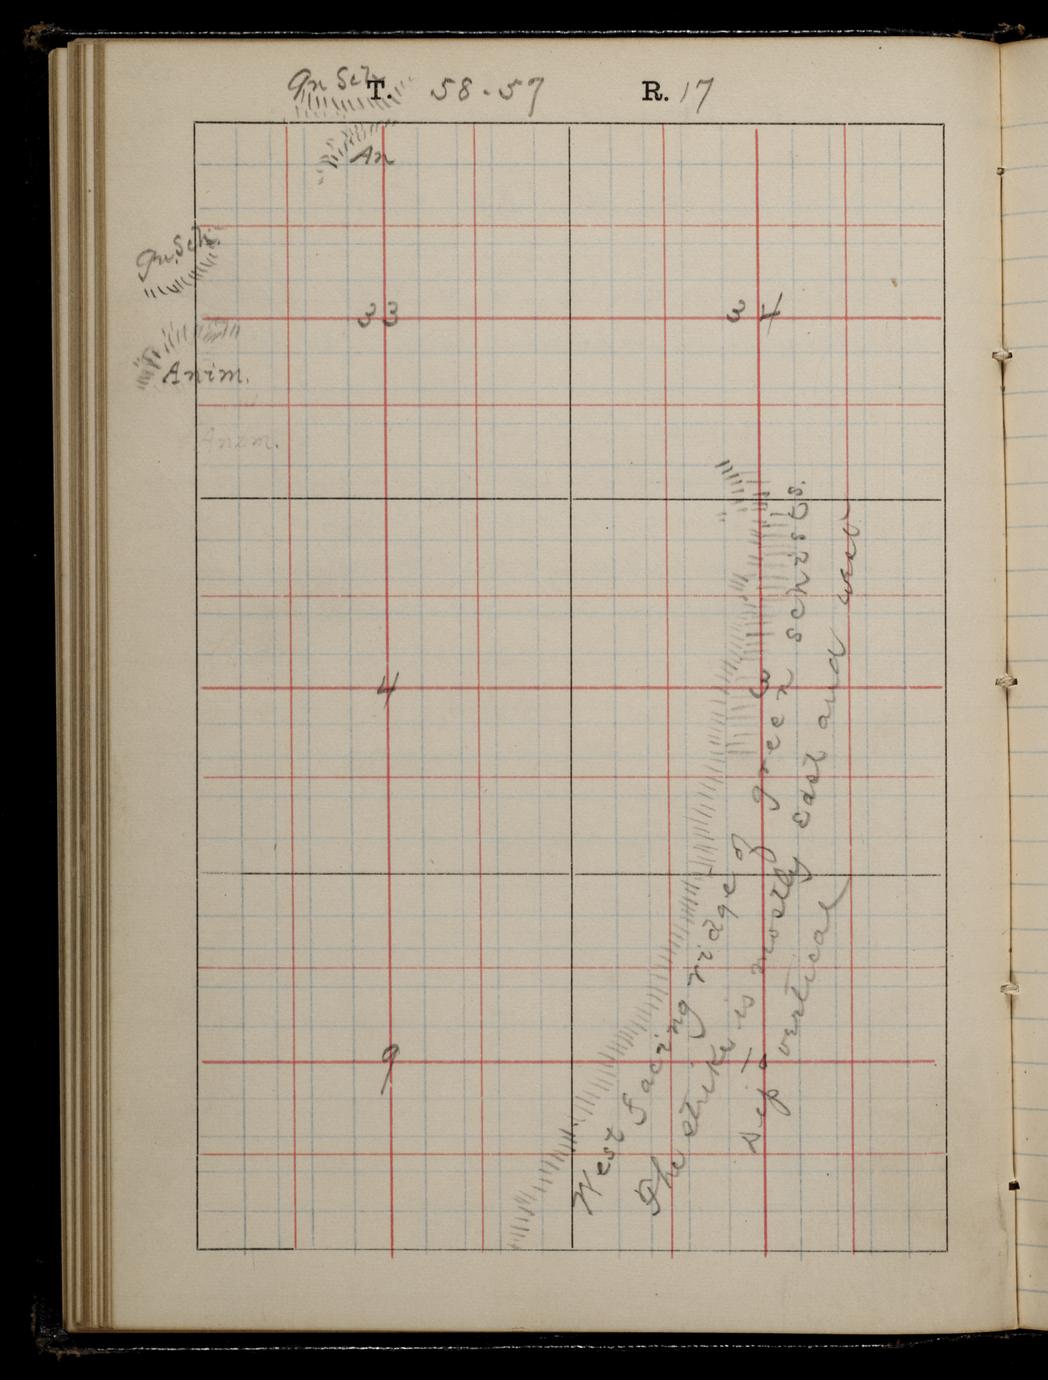 Gn Sch.
T. 58-57 R. 17
An
Gn. Sch.
33 34
Anim.
Anim.
4 3
9 10
West Facing ridge of green schists.
The strike is mostly East and west
Dip vertical